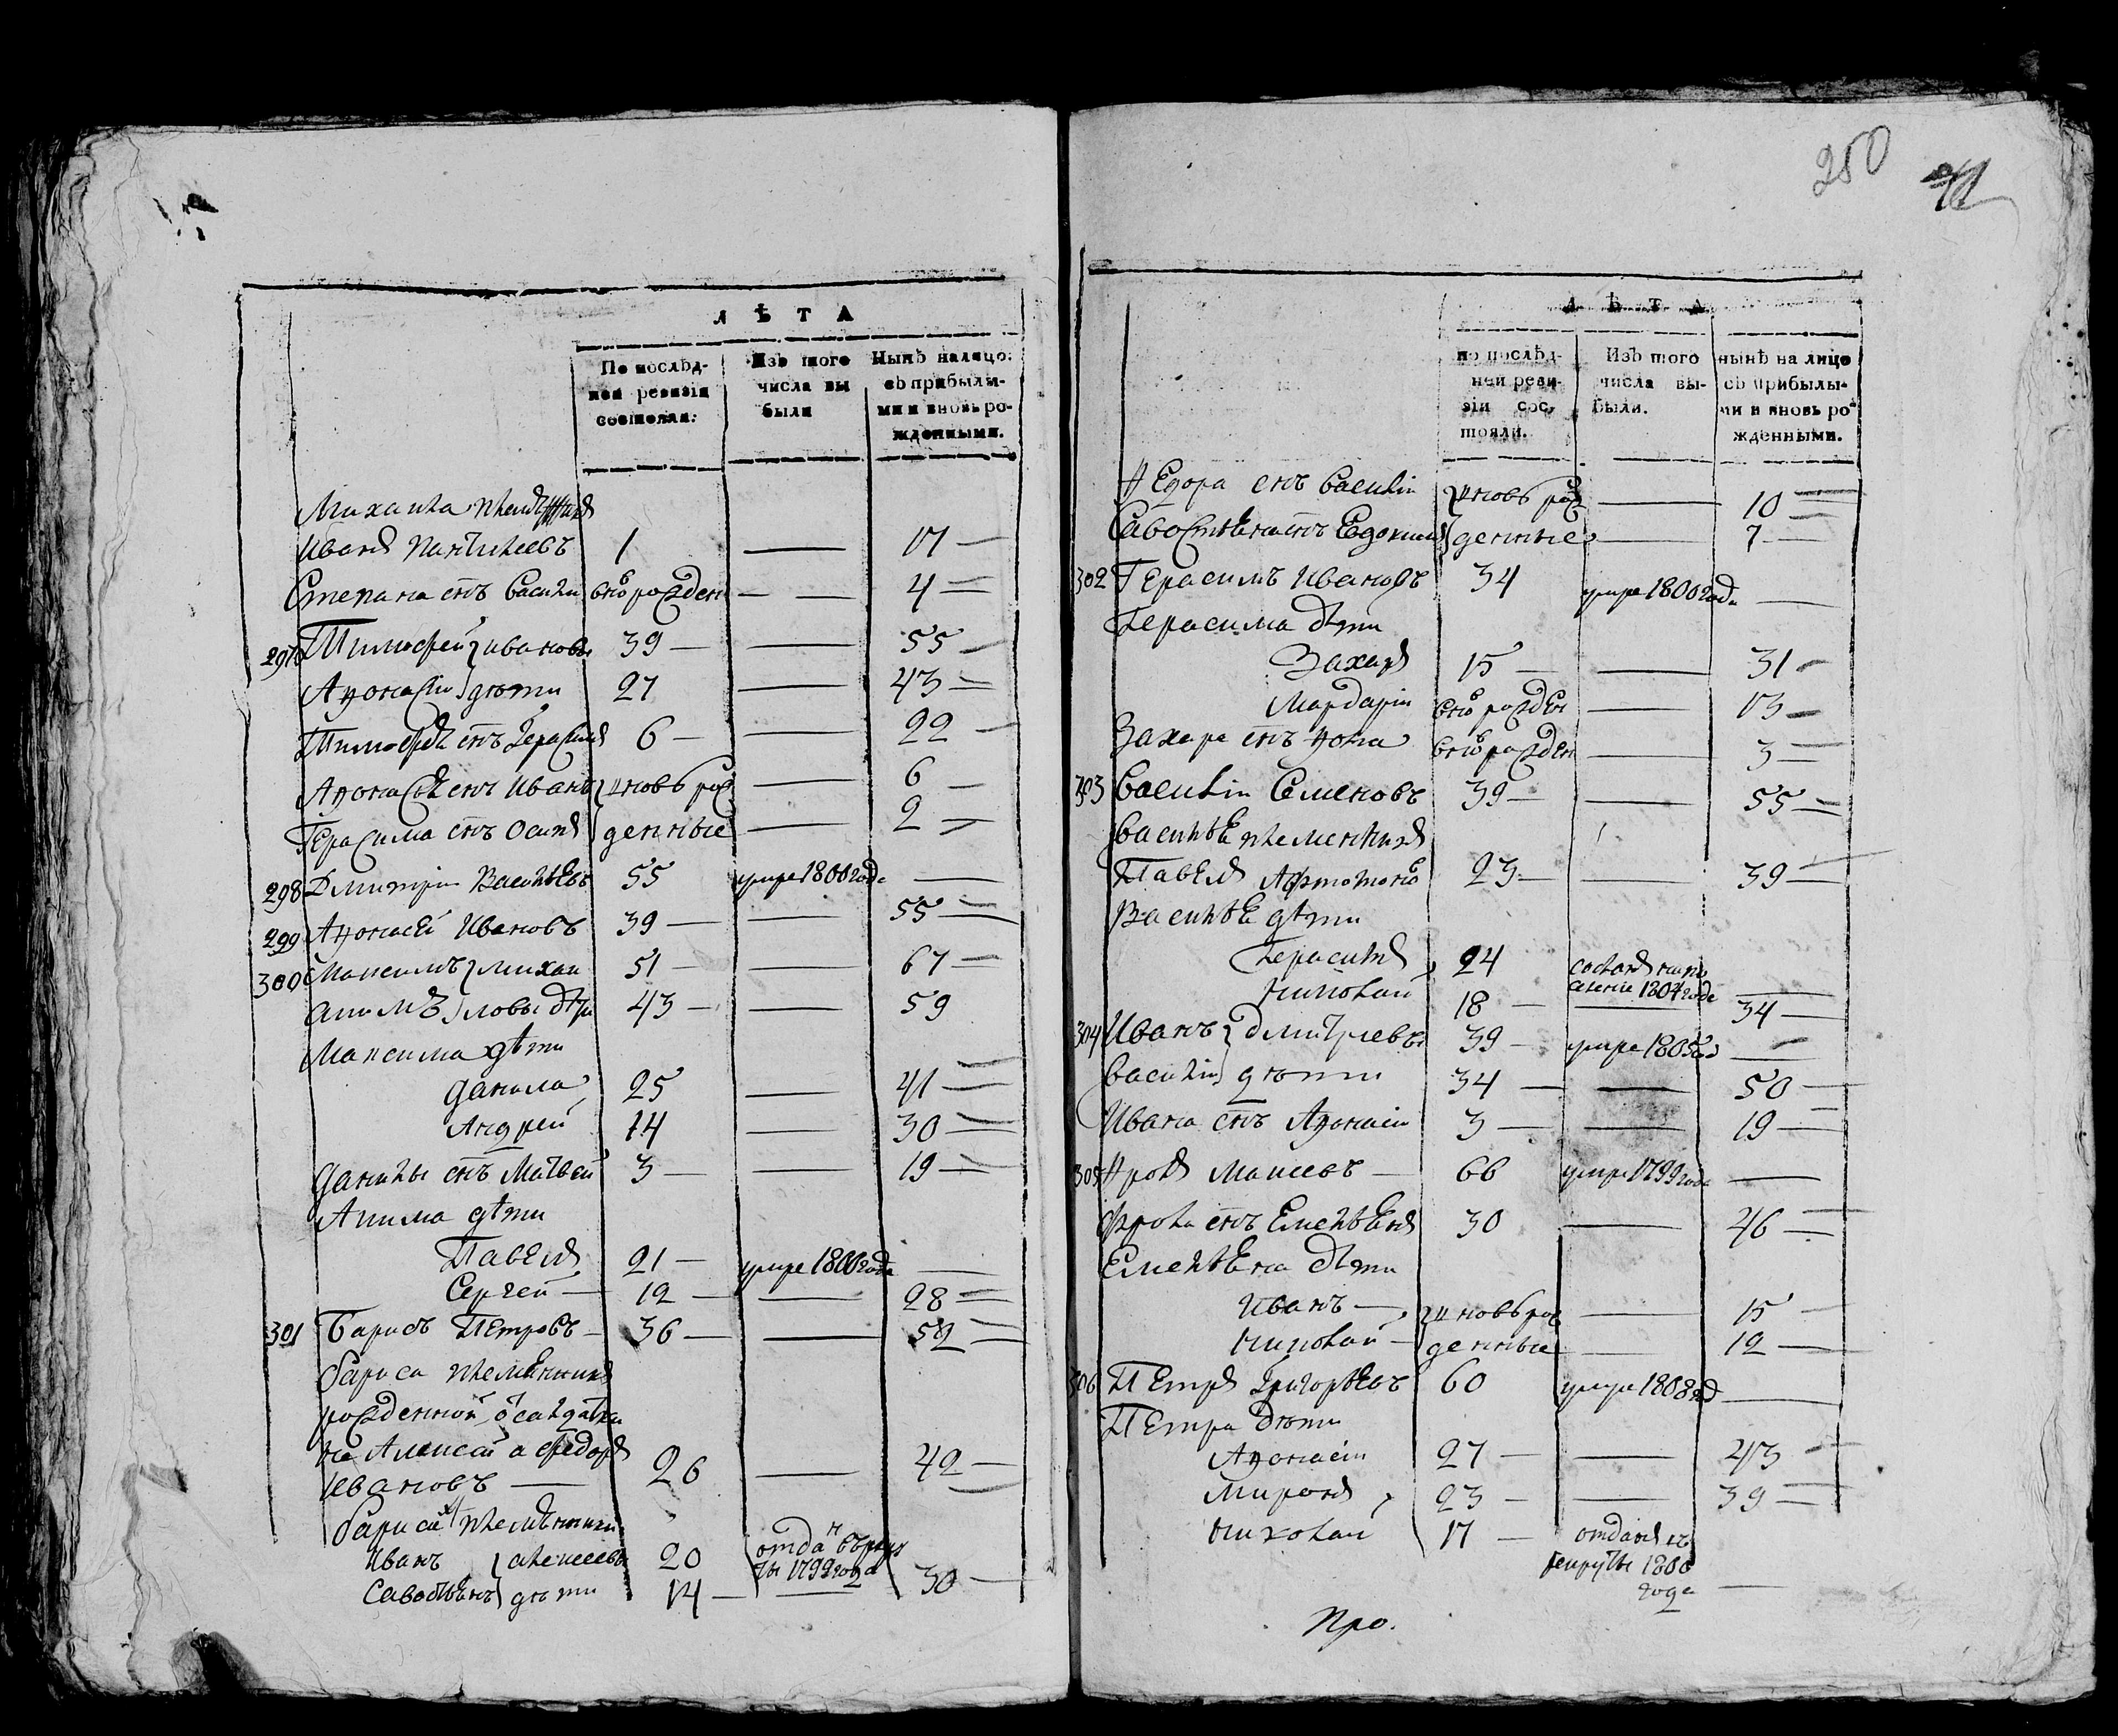 ЛѢТА
По послѣд-
ней ревизіи
состояли:
Изъ того
числа вы
были
Нынѣ на лицо:
съ прибылы-
ми и вновь ро-
жденными.
Михаила племянникъ
Иванъ 1 — 17 —
Степана снъ Василій вновь рожден — — 4 —
297 Тимофей } ивановы 39 — — 55 —
Афонасій } дѣти 27 — 43 —
Тимофея снъ Герасимъ 6 — — 22 —
Афонасья снъ Иванъ } вновь рож — 6 —
Герасима снъ Осипъ } денные — 2 —
298 Дмитрій Васильевъ 55 умре 1800 года —
299 Афонасей Ивановъ 39 — — 55 —
300 Максимъ } михаи 51 — — 67 —
акимъ } ловы дѣти 43 — — 59
Максима дѣти
данила 25 — 41 —
Андрей 14 — 30 —
данилы снъ Матвей 3 — — 19 —
Акима дѣти
Павелъ 21 — умре 1800 года —
Сергей — 12 — — 28 —
301 Барисъ Петровъ — 36 — — 52 —
бариса племянникъ
рожденной ѿ салдатки
не Алексей а Федоръ
Ивановъ — 26 — 42 —
бариса племянники
Иванъ } алексеевы 20 отданъ въ рекру
ты 1799 года
Савостьянъ } дѣти 14 — — 30 —
250
ЛѢТА
по послѣд-
ней реви-
зіи сос-
тояли.
Изъ того
числа вы-
были.
нынѣ на лицо
съ прибылы-
ми и вновь ро-
жденными.
Федора снъ Василій } вновь рож — 10 —
Савостьяна снъ Евдокимъ } денные — 7 —
302 Герасимъ Ивановъ 34 умре 1800 года —
Герасима дѣти
Захаръ 15 — — 31 —
Мардарій вновь рожден — 13 —
Захара снъ Фома вновь рожден — 3 —
303 Василій Семеновъ 39 — — 55 —
Василья племянникъ
Павелъ 23 — — 39 —
Василья дѣти
Герасимъ 24 сосланъ на по
селеніе 1804 года —
Николай 18 — — 34 —
304 Иванъ } дмитріевы 39 — умре 1805 го —
Василій } дѣти 34 — — 50 —
Ивана снъ Афонасій 3 — — 19 —
305 Фролъ Макеевъ — 66 умре 1799 года —
Фрола снъ Емельянъ 30 — 46 —
Емельяна дѣти
Иванъ — } вновь рож — 15 —
Николай — } денные — 12 —
306 Петръ Григорьевъ 60 умре 1808 год —
Петра дѣти
Афонасій 27 — — 43 —
Миронъ 23 — — 39 —
Николай 17 — отданъ въ
рекруты 1800
года —
Про.